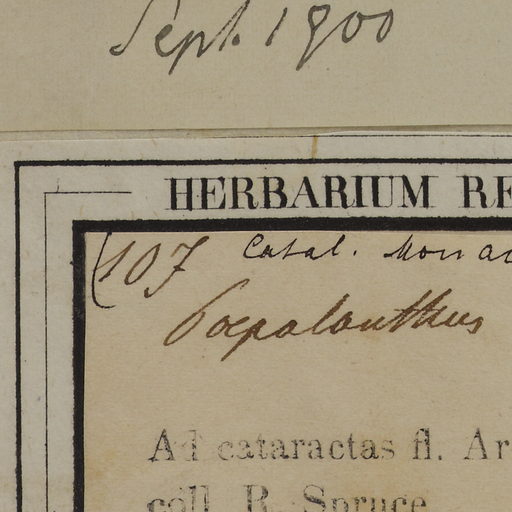 Sept. 1900
HERBARIUM RE
(107 Catal. Mon
Paepalanthus
Ad cataractas fl. Ar
coll. R. Spruce